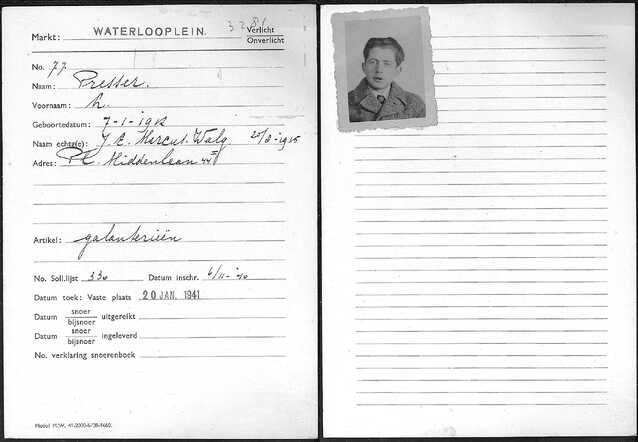 Markt: WATERLOOPLEIN. Verlicht
Onverlicht
No. 77
Naam: Presser.
Voornaam:
Geboortedatum: 7-1-
Naam echtg(e): J.C. Marcus. Walg
Adres: Pl. Middenlaan
Artikel: galanteriën
No. Soll.lijst 336 Datum inschr. 6/11-'40
Datum toek: Vaste plaats 20 JAN. 1941
Datum snoer/bijsnoer uitgereikt
Datum snoer/bijsnoer ingeleverd
No. verklaring snoerenboek
Model M.W.